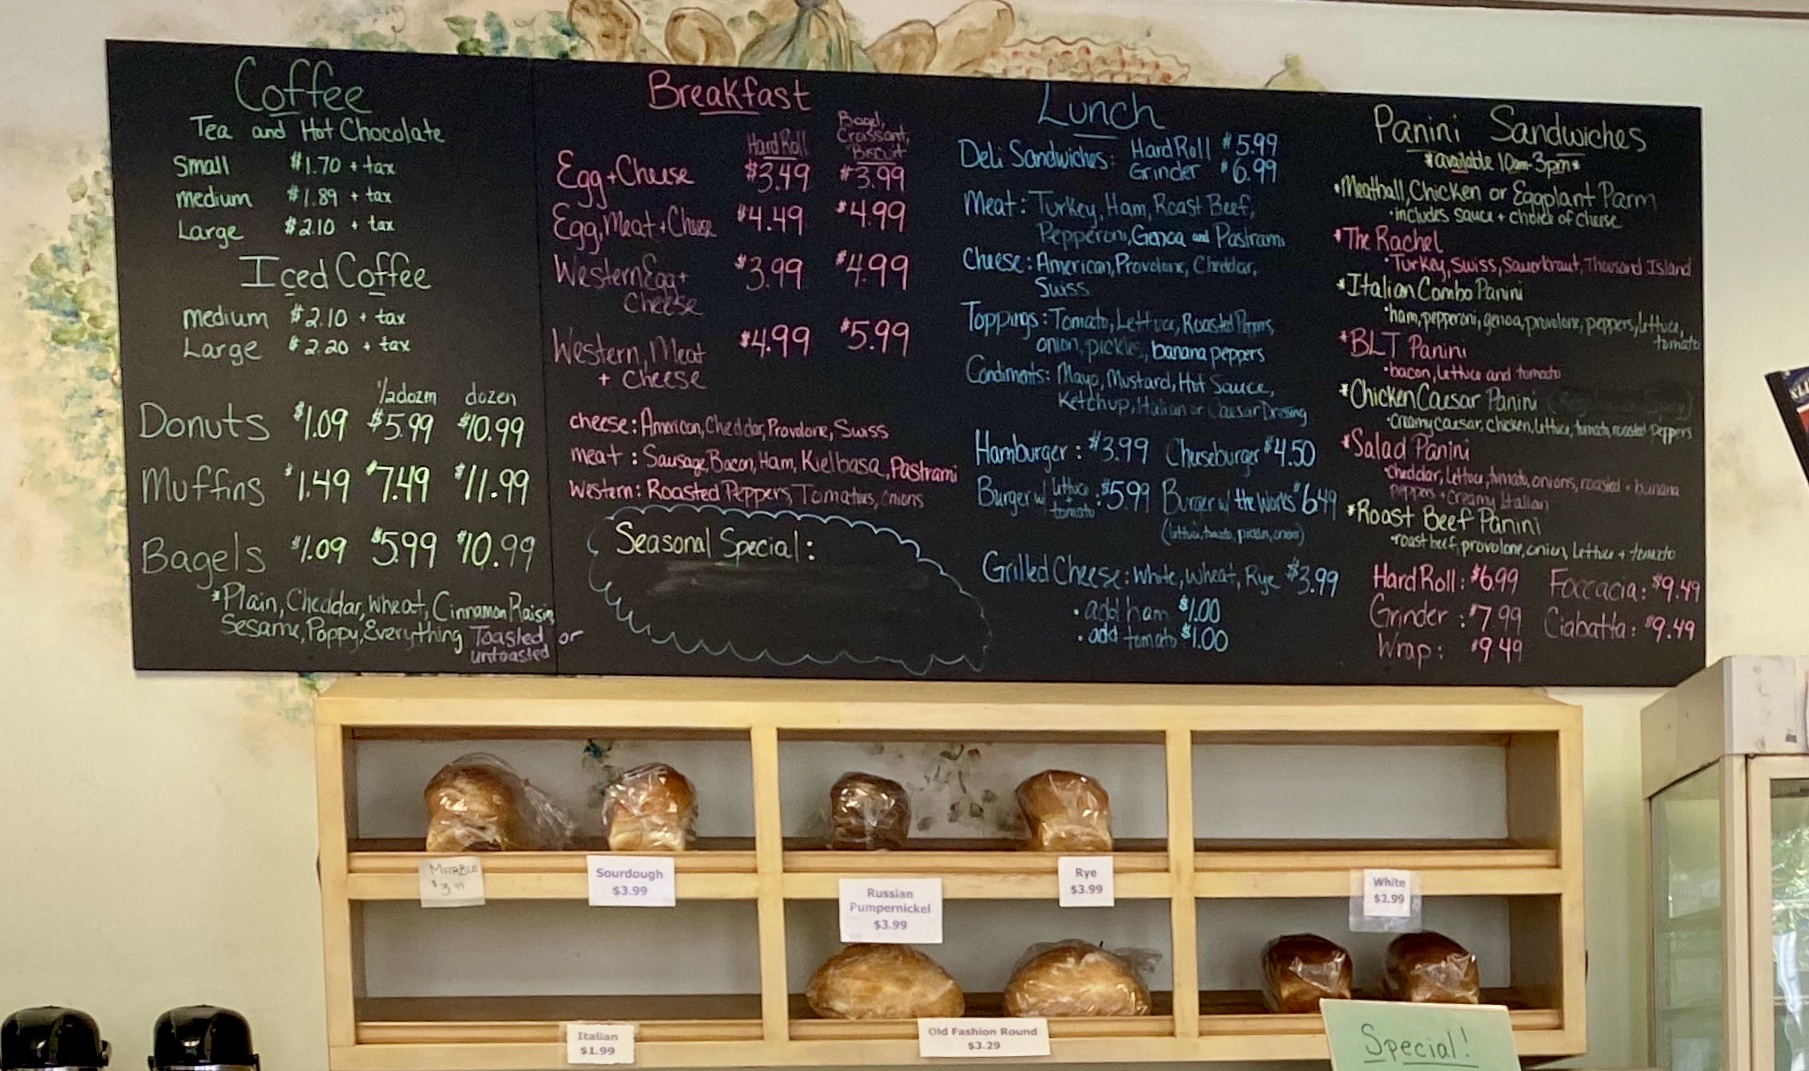 Coffee
Tea and Hot Chocolate
Small $1.70 + tax
medium $1.89 + tax
Large $2.10 + tax
Iced Coffee
medium $2.10 + tax
Large $2.20 + tax
1/2 dozen dozen
Donuts $1.09 $5.99 $10.99
Muffins $1.49 $7.49 $11.99
Bagels $1.09 $5.99 $10.99
*Plain, Cheddar, Wheat, Cinnamon Raisin,
Sesame, Poppy, Everything Toasted or
untoasted
Breakfast
Hard Roll
Bagel,
Crossant,
Biscuit
Egg + Cheese $3.49 $3.99
Egg, Meat + Cheese $4.49 $4.99
Western Egg + $3.99 $4.99
Cheese
Western, Meat $4.99 $5.99
+ cheese
cheese: American, Cheddar, Provolone, Swiss
meat : Sausage, Bacon, Ham, Kielbasa, Pastrami
Western: Roasted Peppers, Tomatoes, Onions
Seasonal Special:
Lunch
Deli Sandwiches: Hard Roll $5.99
Grinder $6.99
Meat: Turkey, Ham, Roast Beef,
Pepperoni, Genoa and Pastrami
Cheese: American, Provolone, Cheddar,
Swiss
Toppings: Tomato, Lettuce, Roasted Peppers,
onion, pickles, banana peppers
Condiments: Mayo, Mustard, Hot Sauce,
Ketchup, Italian or Caesar Dressing
Hamburger: $3.99 Cheeseburger $4.50
Burger w/ lettuce tomato: $5.99 Burger w/ the Works $6.49
(lettuce, tomato, pickles, onions)
Grilled Cheese: White, Wheat, Rye $3.99
• add ham $1.00
• add tomato $1.00
Panini Sandwiches
*available 10am-3pm*
*Meatball, Chicken or Eggplant Parm
•includes sauce + choice of cheese
*The Rachel
•Turkey, Swiss, Sauerkraut, Thousand Island
*Italian Combo Panini
•ham, pepperoni, genoa, provolone, peppers, lettuce,
tomato
*BLT Panini
•bacon, lettuce and tomato
*Chicken Caesar Panini
•Creamy caesar, chicken, lettuce, tomato, roasted peppers
*Salad Panini
•cheddar, lettuce, tomato, onions, roasted + banana
peppers + Creamy Italian
*Roast Beef Panini
•roast beef, provolone, onion, lettuce + tomato
Hard Roll: $6.99 Foccacia: $9.49
Grinder: $7.99 Ciabatta: $9.49
Wrap: $9.49
MARBLE
Sourdough
$3.99
Russian
Pumpernickel
$3.99
Rye
$3.99
White
$2.99
Italian
$1.99
Old Fashion Round
$3.29
Special!